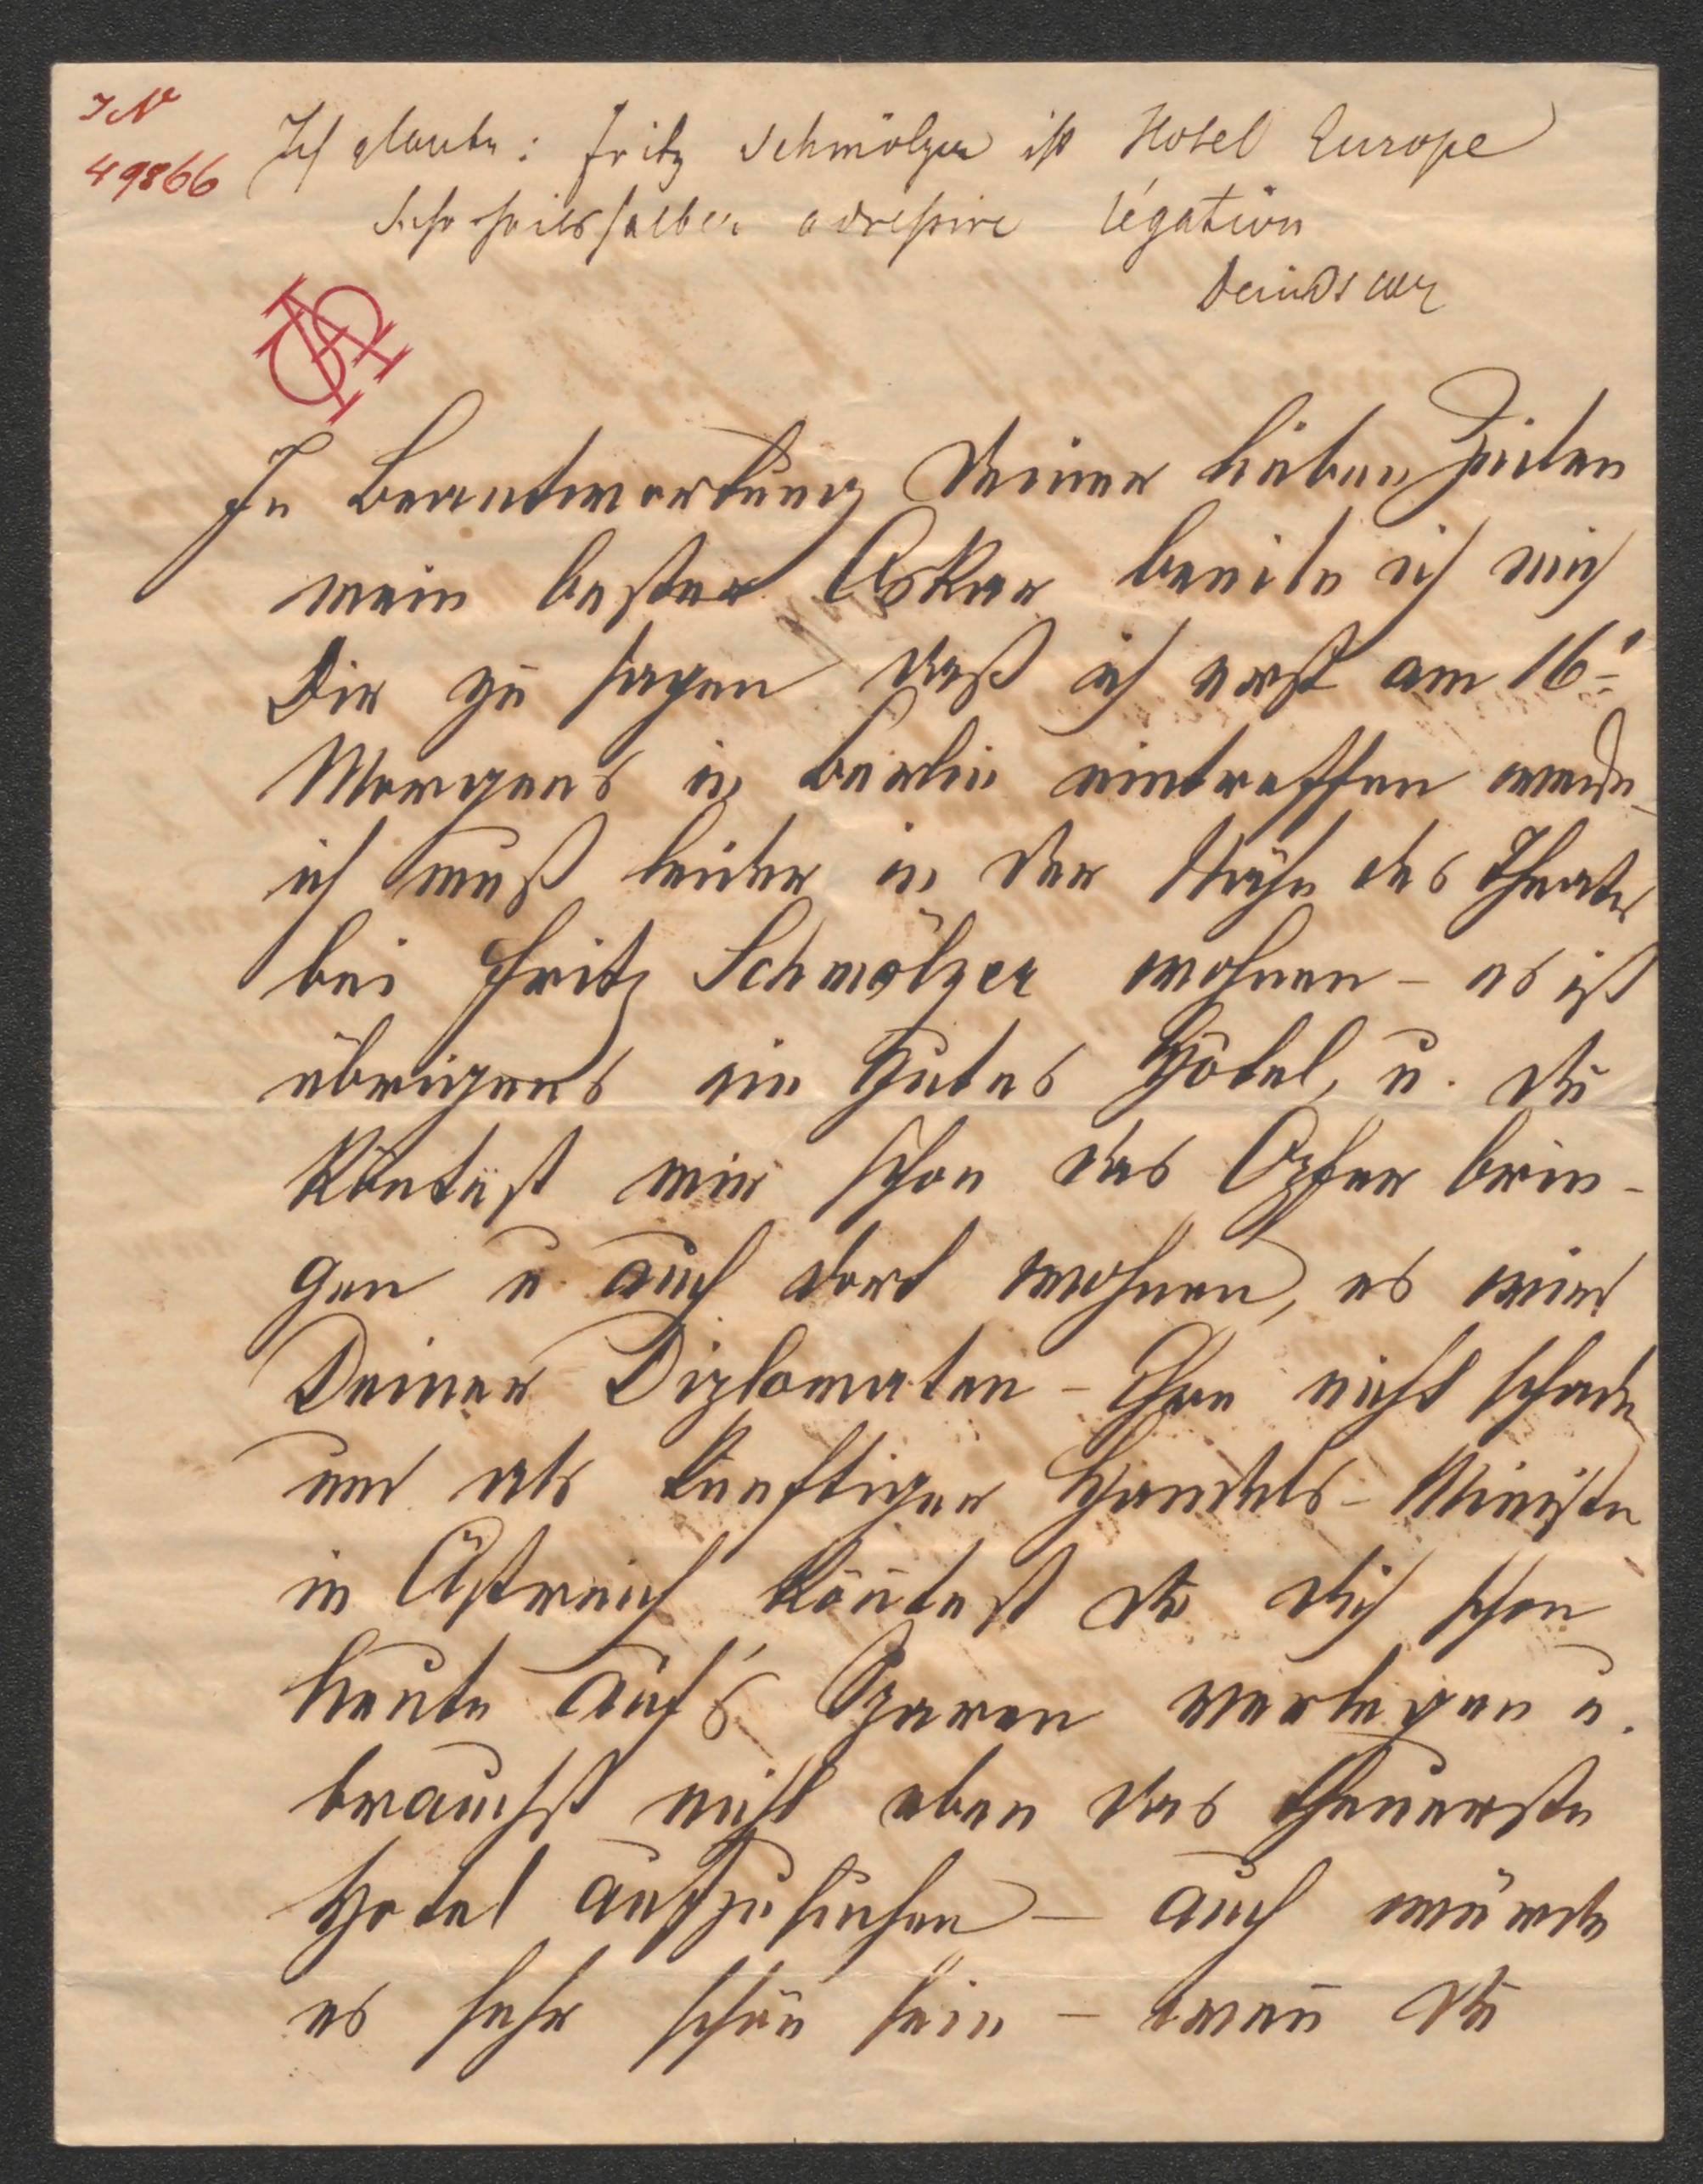 IN
49866
Ich glaube: Fritz Schmölzer ist Hotel Europe
Sicherheitshalber adressire légation
Dein Oscar
In Beantwortung Deiner lieben Zeilen
mein bester Oskar beeile ich mich
Dir zu sagen daß ich erst am 16t
Morgens in Berlin eintreffen werde
ich muß leider in der Nähe des Theaters
bei Fritz Schmölzer wohnen – es ist
übrigens ein gutes Hôtel, u. Du
köntest mir schon das Opfer brin-
gen u auch dort wohnen, es wird
Deiner Diplomaten-Ehre nicht schaden
und als künftiger Handels-Minister
in Östreich kön̄test Du Dich schon
heute auf's Sparen verlegen u.
brauchst nicht eben das theuerste
Hotel aufzusuchen – auch würde
es sehr schön̄ sein – wen̄ Du